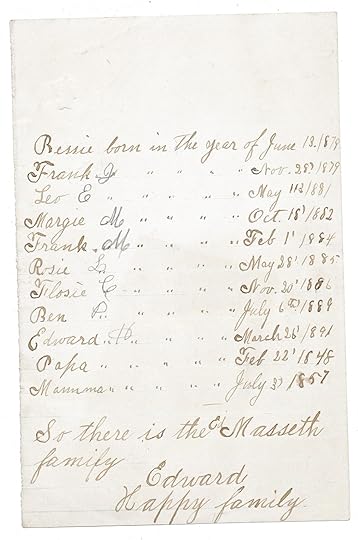 Bessie born in the year of June 13. 1878
Frank J " " " " Nov. 28' 1879
Leo E " " " " May 11' 1881
Margie M " " " " Oct. 18' 1882
Frank. M. " " " " Feb 1' 1884
Rosie L " " " " May 28' 1885
Flosie C " " " " Nov. 20' 1886
Ben P. " " " " July 6th 1889
Edward H " " " " March 26' 1891
Papa " " " " Feb 22' 1848
Mamma " " " " July 3' 1857
So there is the Masseth
family
Edward
Happy family.